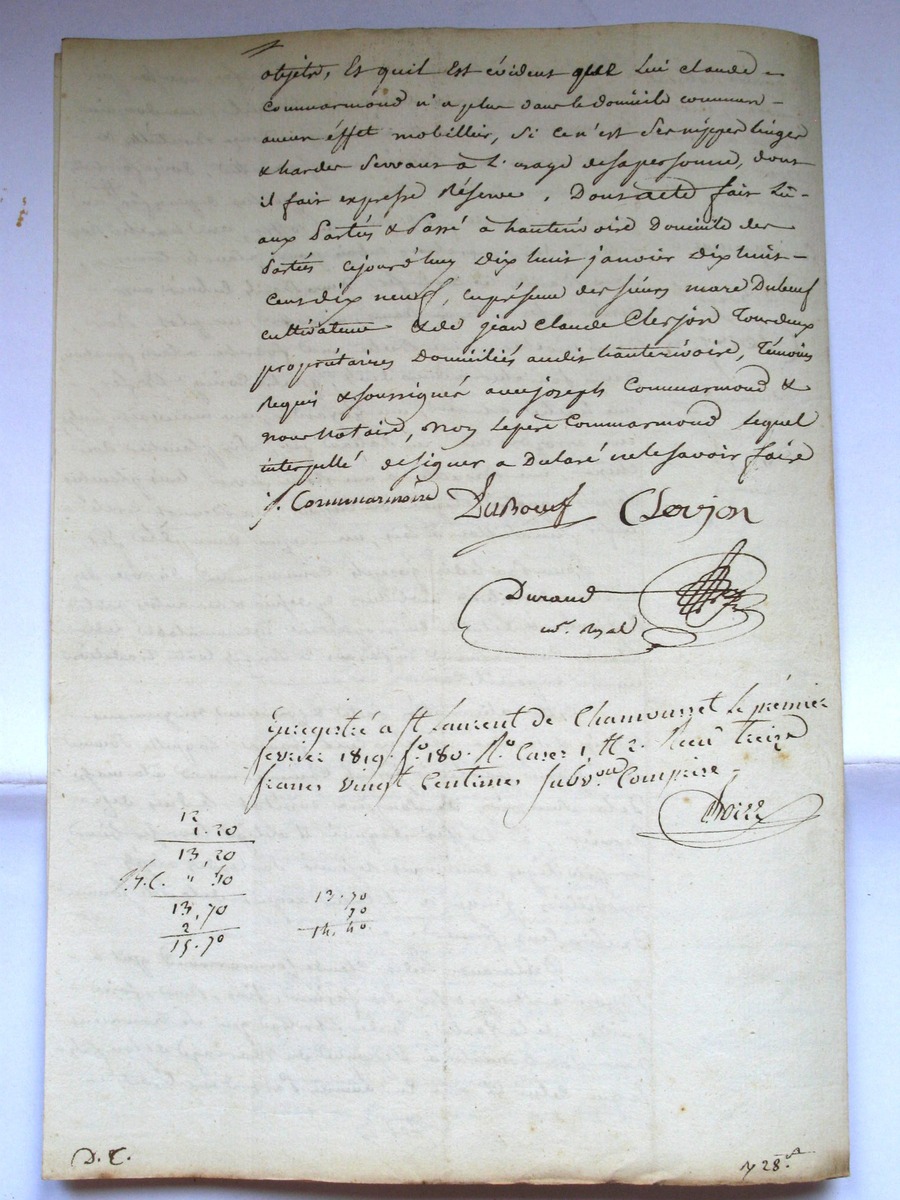 objets, Et quil Est évident que Lui claude
Commarmond n'a plus dans le domicile commun
aucun éffet mobillier, Si ce n'est Ses nippes linges
& hardes Servant à L'usage de sa personne, dont
il fait expresse Réserve. Dont acte fait Lu
aux Partiés & Passé à hauterivoire Domicile des
Partiés cejourd'huy Dix huit janvier dix huit
Cent dix neuf, En présence des sieurs marc Duboeuf
cultivateur & de jean Claude Clerjon Tous deux
propriétaires Domiciliés audit hauterivoire, Témoins
Requis & soussignés avec joseph Commarmond &
nous Notaire, non Le pere Commarmond Lequel
interpellé de signer a Déclaré ne le savoir faire
j. Commarmond DuBoeuf Clerjon
Durand
not. Royal
Enregistré a St Laurent de Chamousset Le prémier
fevrier 1819. fo. 180. Ro. Cases 1 et 2. Recu Treize
francs vingt Centimes Subvon Comprise
12
1.20
13,20
50
13,70
2
15.70
13.70
70
14.40
D. C.
28.